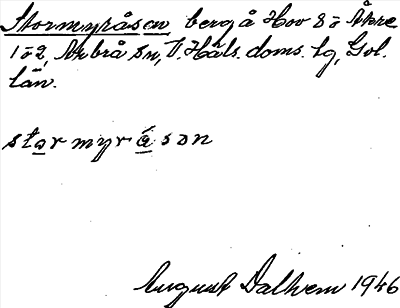 Stormyråsen, berg å Hov 8 o Åkre
1 o 2, Arbrå sn, V. Häls. doms. tg, Gvl.
län.
starmyråsən
August Dalhem 1946